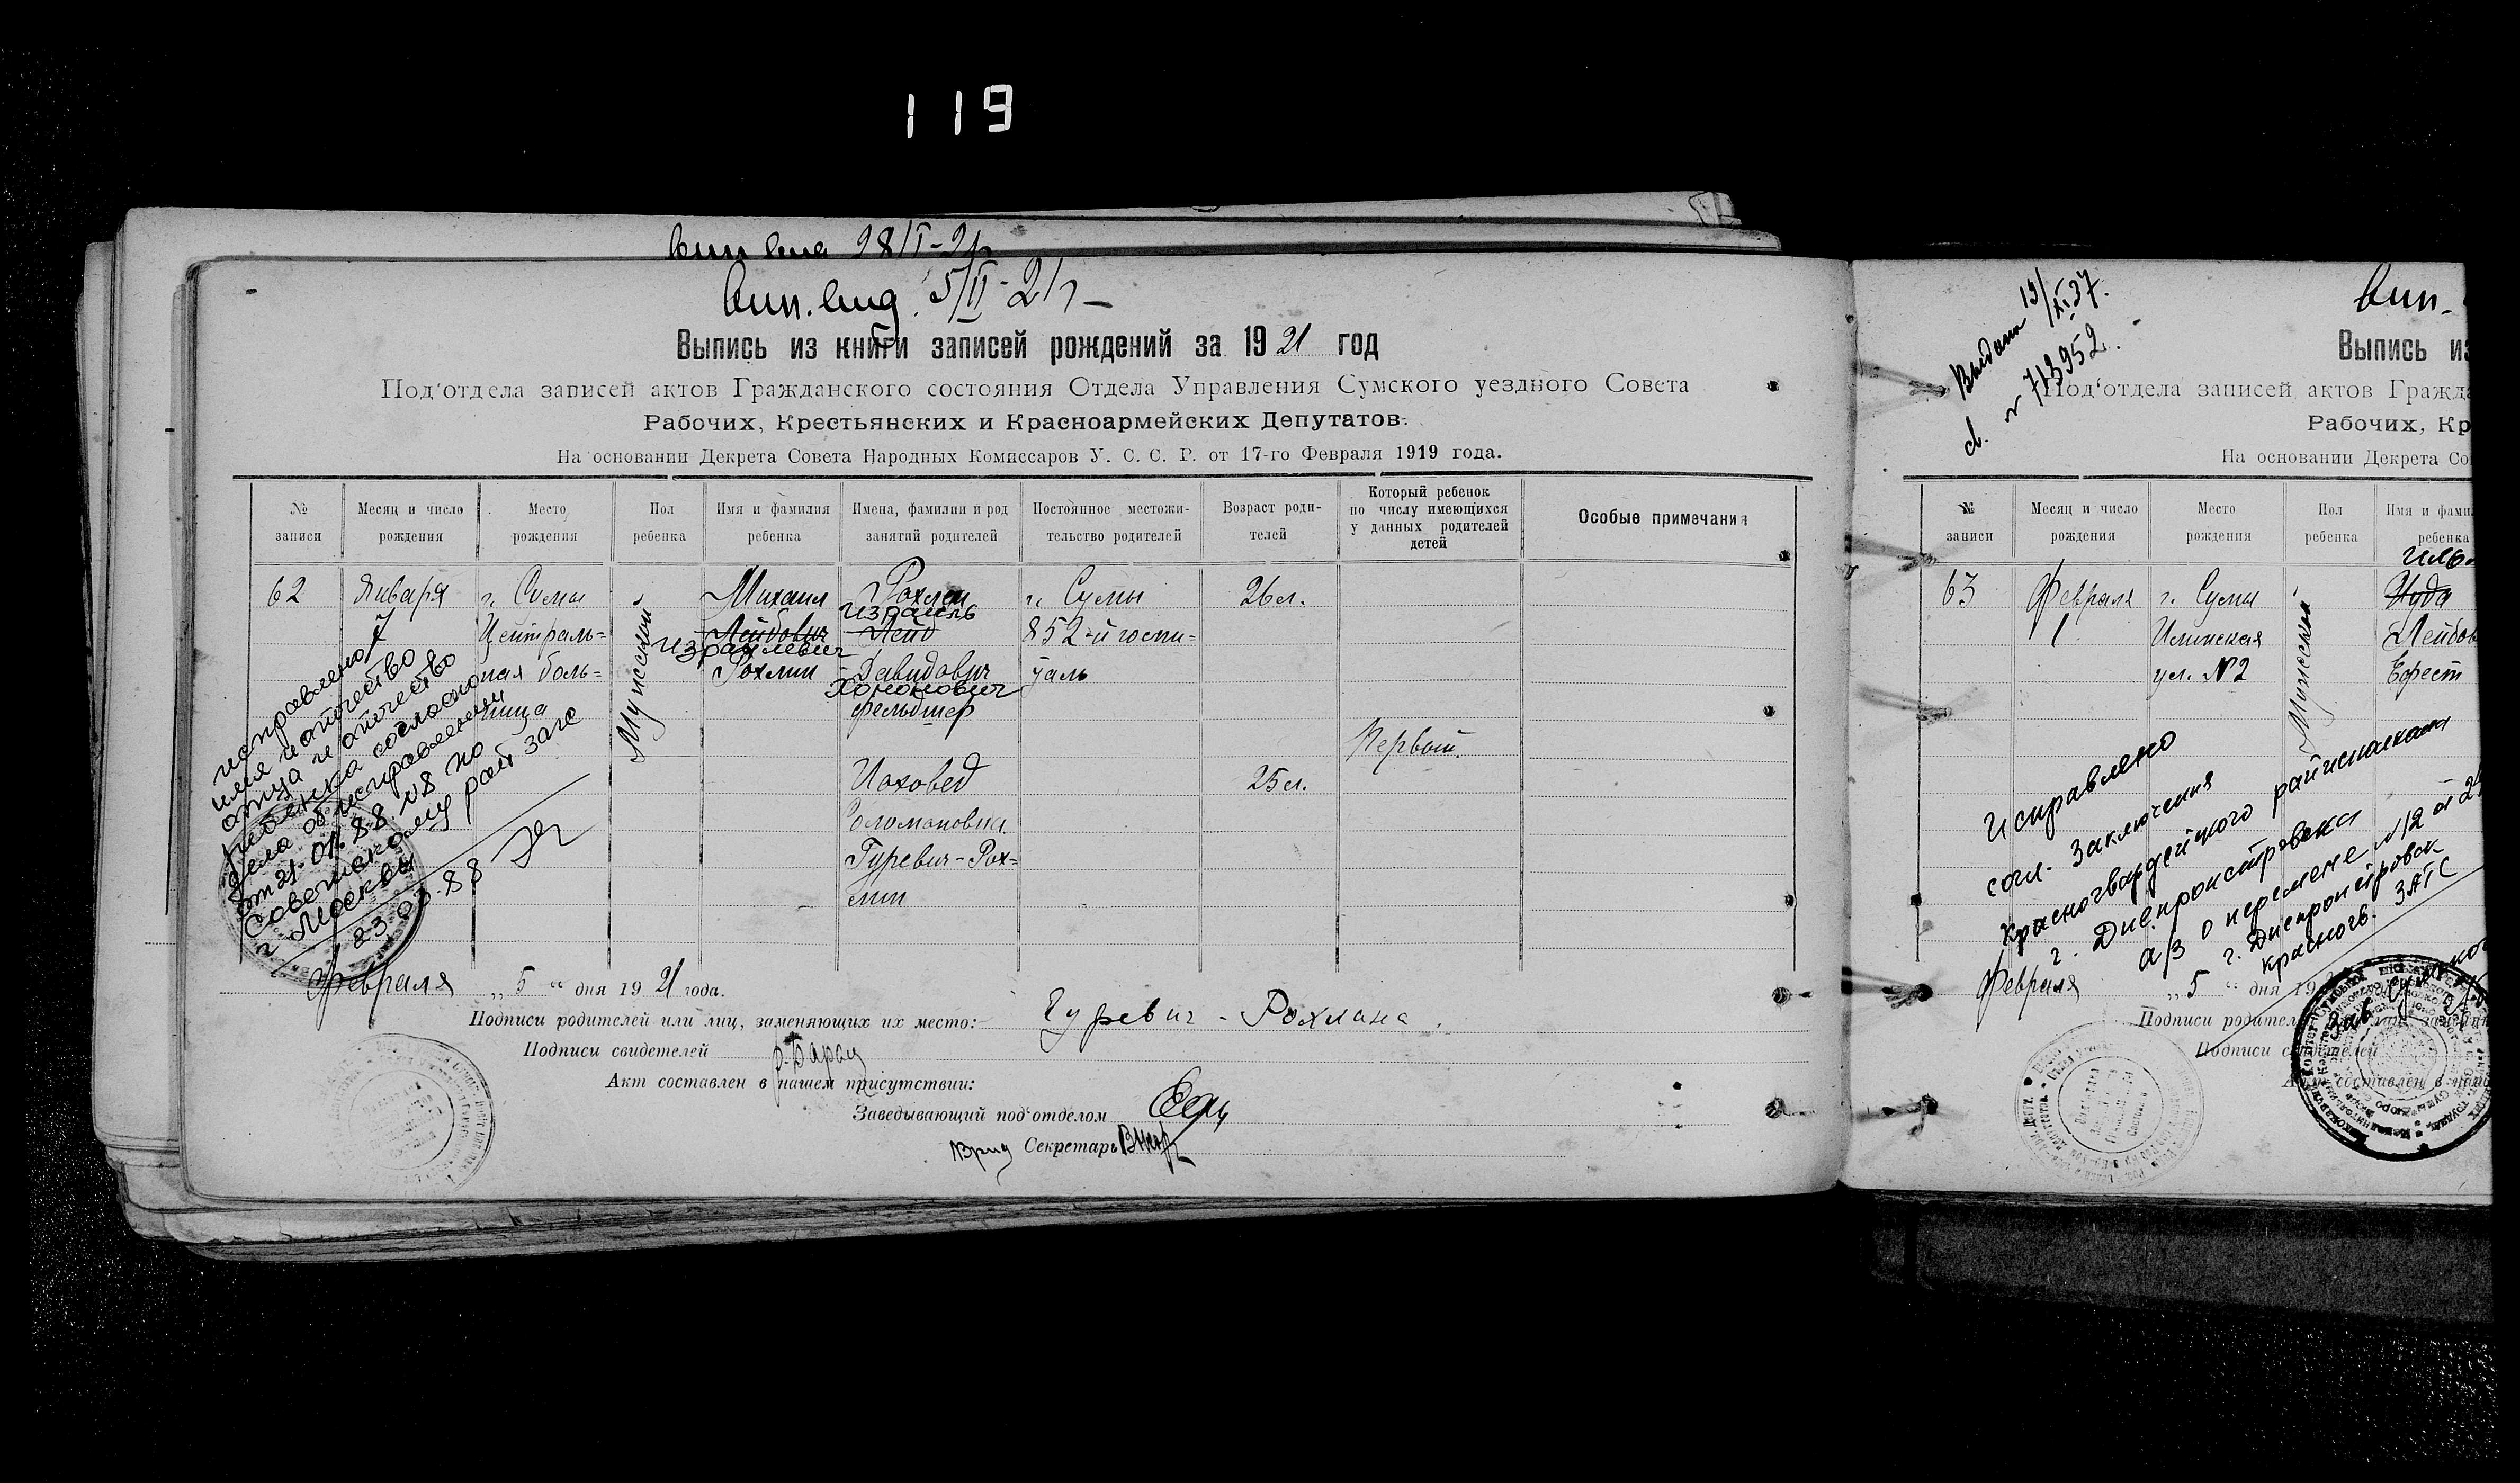 119
вып. выд. 5/II-21 г.
Выпись из книги записей рождений за 1921 год
Под'отдела записей актов Гражданского состояния Отдела Управления Сумского уездного Совета
Рабочих, Крестьянских и Красноармейских Депутатов.
На основании Декрета Совета Народных Комиссаров У. С. С. Р. от 17-го Февраля 1919 года.
№ записи
Месяц и число рождения
Место рождения
Пол ребенка
Имя и фамилия ребенка
Имена, фамилии и род занятий родителей
Постоянное местожительство родителей
Возраст родителей
Который ребенок по числу имеющихся у данных родителей детей
Особые примечания
62
Января
7
г. Сумы
Централь=
ная боль=
ница
Мужской
Михаил
Лейбович
Израилевич
Рохлин
Рохлин
Израиль
Лейб
Давидович
Хононович
фельдшер
г. Сумы
852-й госпи=
таль
26 л.
Первый.
Иохевед
Соломоновна
Гуревич-Рох=
лин
25 л.
исправлено
имя и отчество
отца и отчество
ребенка согласно
дела об исправлении
от 21.01.88.
Советскому рай загс
г Москвы
23.03.88
Февраля „ 5 “ дня 1921 года.
Подписи родителей или лиц, заменяющих их место: Гуревич - Рохлина.
Подписи свидетелей
Акт составлен в нашем присутствии:
Заведывающий под'отделом
Врид Секретарь
Выдана 19/XI.37.
713952.
вып.
Выпись из
Под'отдела записей актов Гражда
Рабочих, Кр
На основании Декрета Со
№ записи
Месяц и число рождения
Место рождения
Пол ребенка
Имя и фами
ребенка
63
Февраля
1
г. Сумы
ул. №2
Мужской
Иуда
Лейбов
Ефест
Исправлено
согл. Заключения
Красногвардейского райисполкома
г. Днепропетровска
а/з о перемене №12 от
г. Днепропетровск
красногв. ЗАГС
Февраля „ 5 “ дня 19
Подписи родител
Подписи свидетелей
Акт составлен в наше